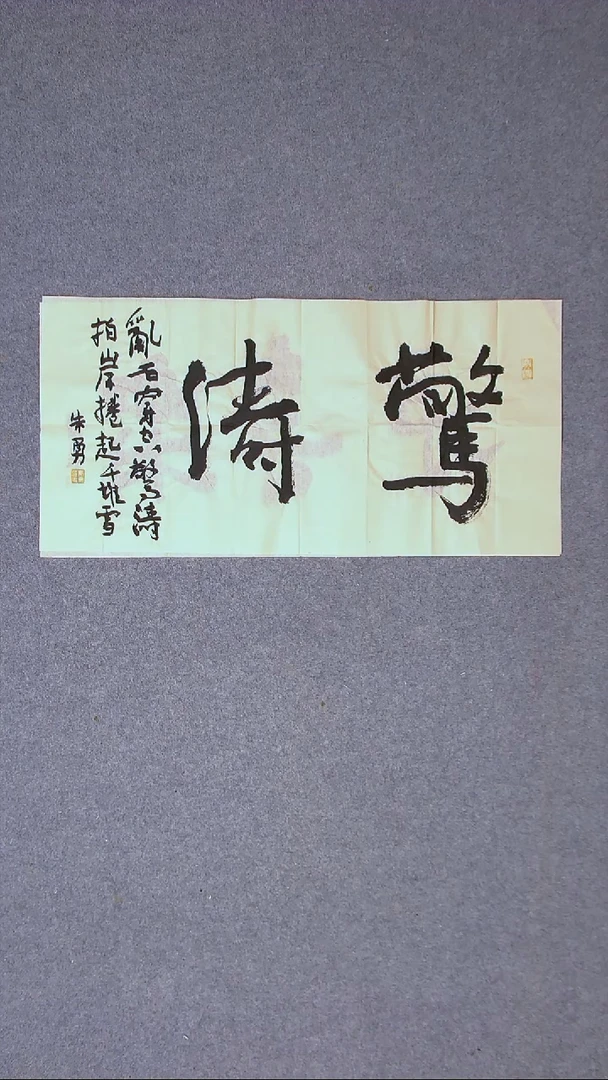 驚涛
亂石穿空驚涛
拍岸捲起千堆雪
朱勇